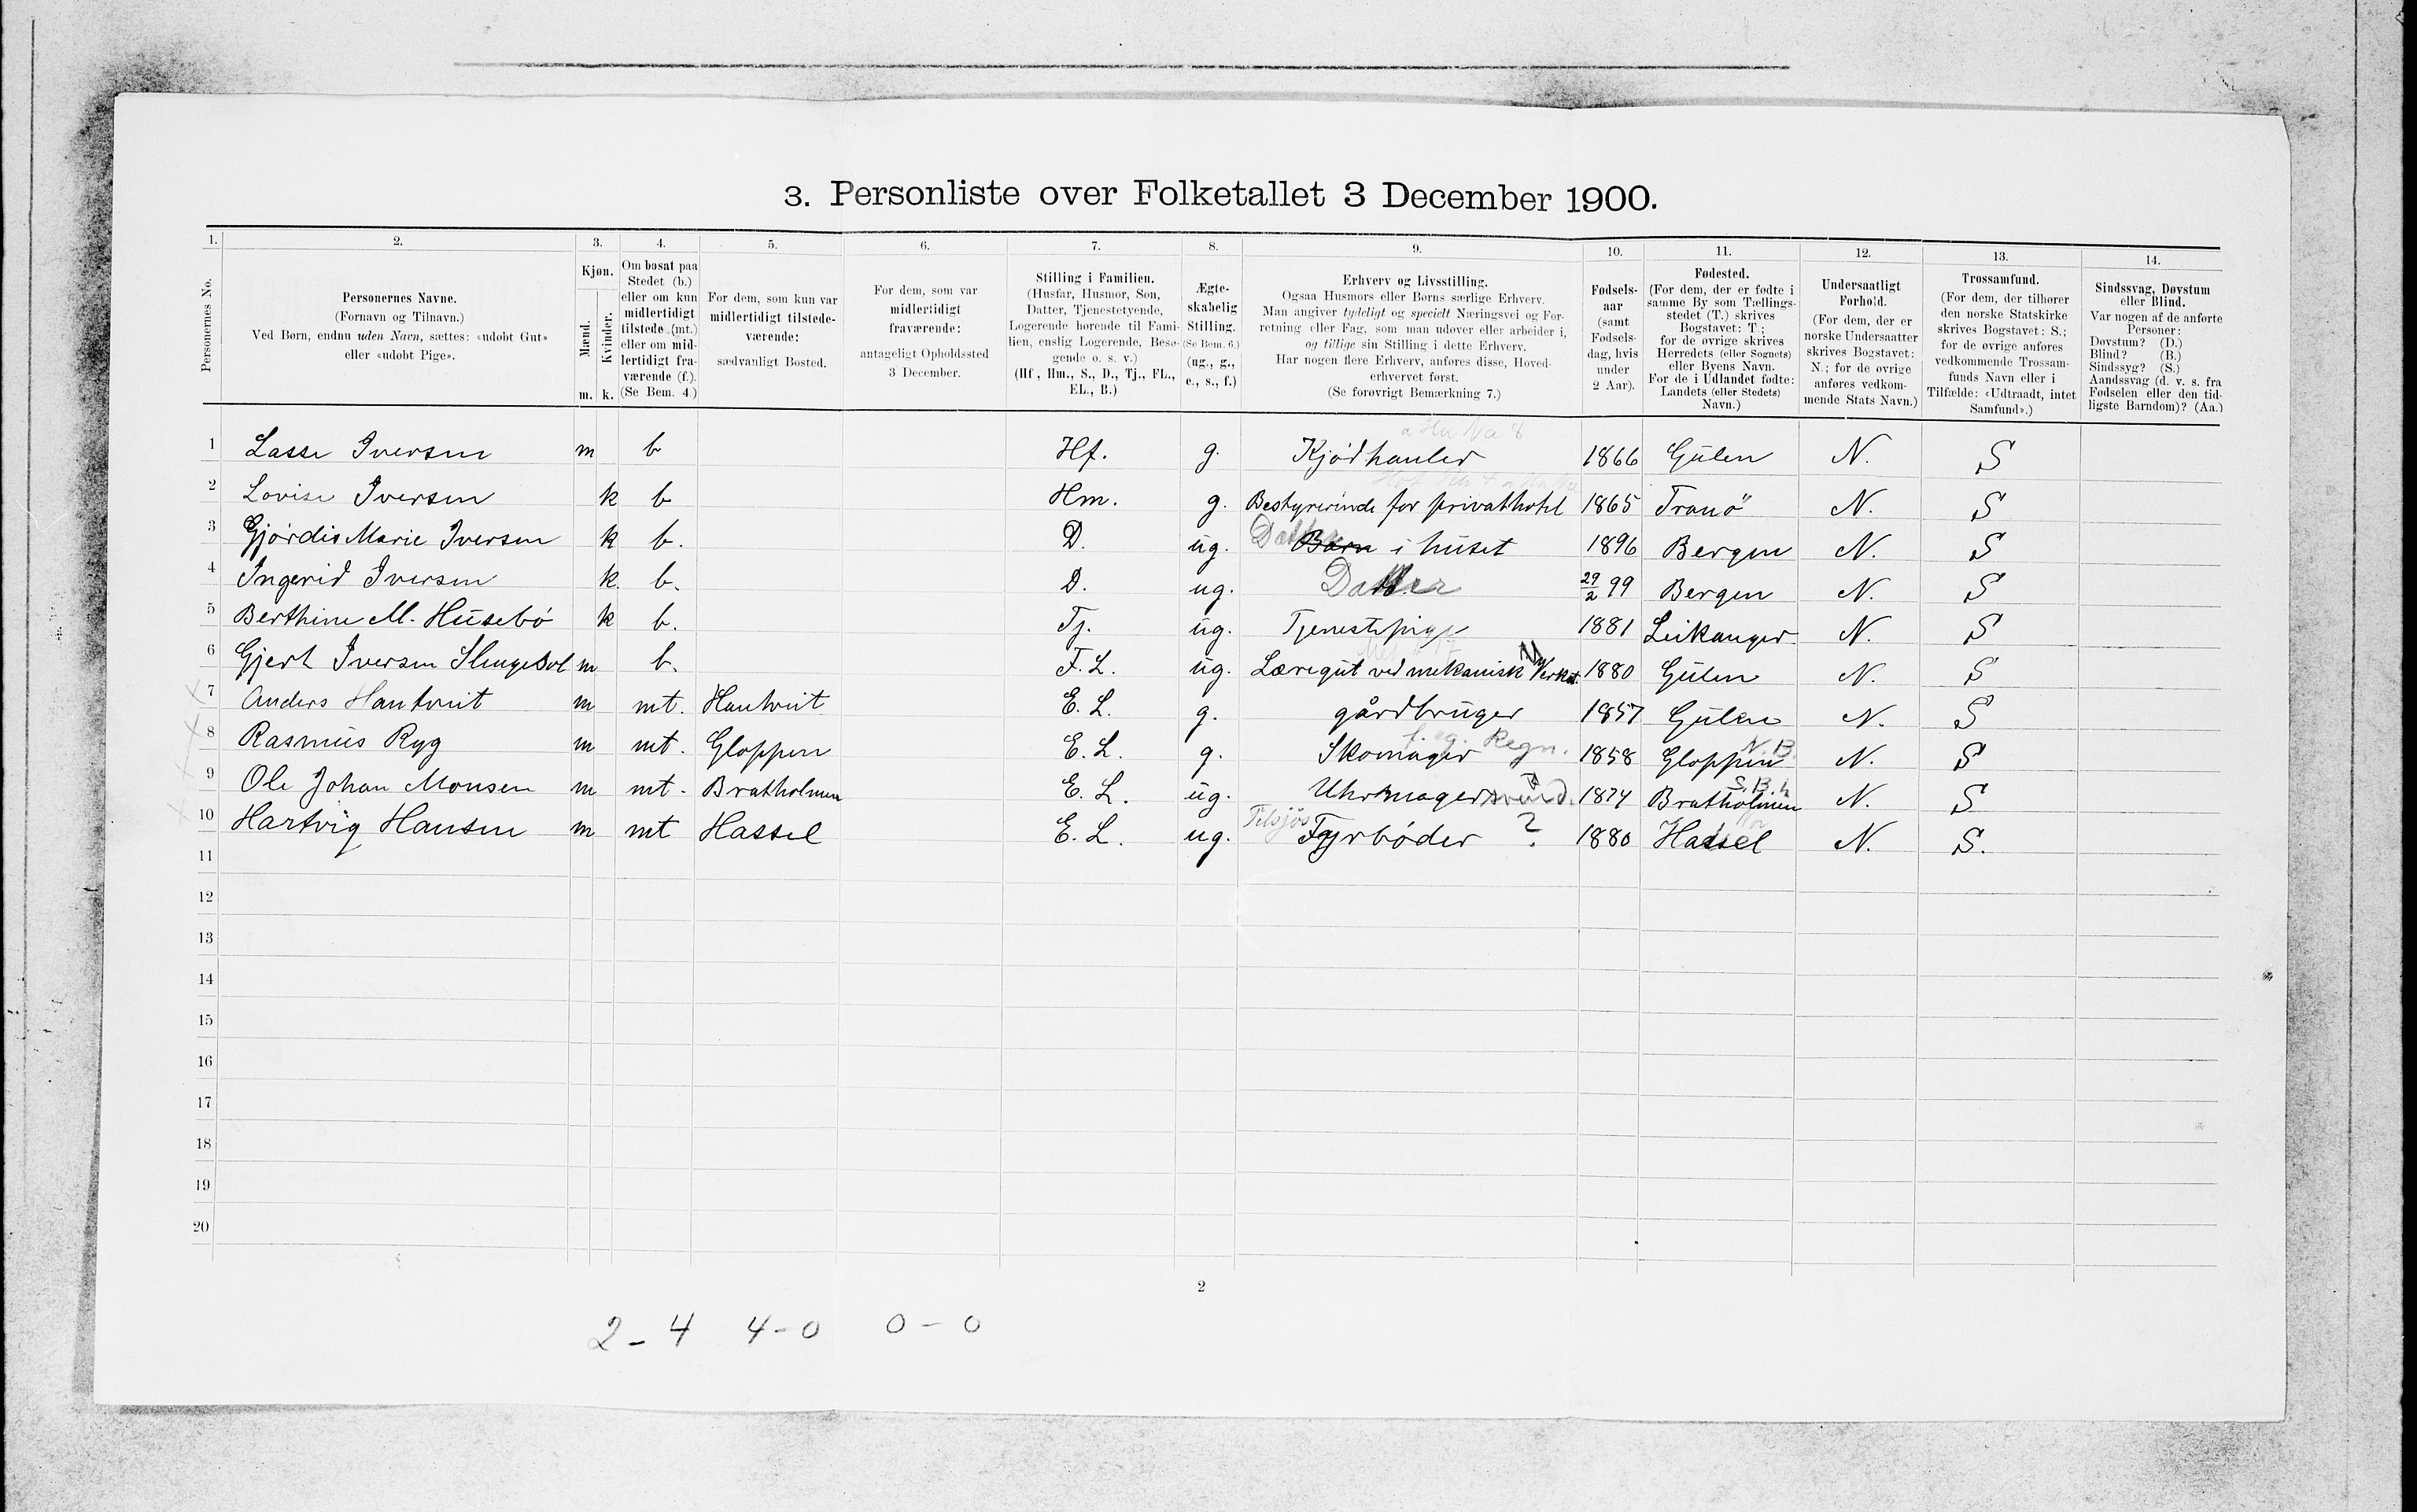 3. Personliste over Folketallet 3 December 1900.
1. 2. 3. 4. 5. 6. 7. 8. 9. 10. 11. 12. 13. 14.
Personernes No.
Personernes Navne.
(Fornavn og Tilnavn.)
Ved Børn, endnu uden Navn, sættes: «udøbt Gut»
eller «udøbt Pige».
Kjøn.
Mænd.
Kvinder.
m. k.
Om bosat paa
Stedet (b.)
eller om kun
midlertidigt
tilstede (mt.)
eller om mid-
lertidigt fra-
værende (f.).
(Se Bem. 4.)
For dem, som kun var
midlertidigt tilstede-
værende:
sædvanligt Bosted.
For dem, som var
midlertidigt
fraværende:
antageligt Opholdssted
3 December.
Stilling i Familien.
(Husfar, Husmor, Søn,
Datter, Tjenestetyende,
Logerende hørende til Fami-
lien, enslig Logerende, Besø-
gende o. s. v.)
(Hf., Hm., S., D., Tj., FL.,
EL., B.)
Ægte-
skabelig
Stilling.
(Se Bem. 6.)
(ug., g.,
e., s., f.)
Erhverv og Livsstilling.
Ogsaa Husmors eller Børns særlige Erhverv.
Man angiver tydeligt og specielt Næringsvei og For-
retning eller Fag, som man udøver eller arbeider i,
og tillige sin Stilling i dette Erhverv.
Har nogen flere Erhverv, anføres disse, Hoved-
erhvervet først.
(Se forøvrigt Bemærkning 7.)
Fødsels-
aar
(samt
Fødsels-
dag, hvis
under
2 Aar).
Fødested.
(For dem, der er fødte i
samme By som Tællings-
stedet (T.) skrives
Bogstavet: T.;
for de øvrige skrives
Herredets (eller Sognets)
eller Byens Navn.
For de i Udlandet fødte:
Landets (eller Stedets)
Navn.)
Undersaatligt
Forhold.
(For dem, der er
norske Undersaatter
skrives Bogstavet:
N.; for de øvrige
anføres vedkom-
mende Stats Navn.)
Trossamfund.
(For dem, der tilhører
den norske Statskirke
skrives Bogstavet: S.;
for de øvrige anføres
vedkommende Trossam-
funds Navn eller i
Tilfælde: «Udtraadt, intet
Samfund».)
Sindssvag, Døvstum
eller Blind.
Var nogen af de anførte
Personer:
Døvstum? (D.)
Blind? (B.)
Sindssyg? (S.)
Aandssvag (d. v. s. fra
Fødselen eller den tid-
ligste Barndom)? (Aa.)
1 Lasse Iversen m b Hf. g. Kjødhanler 1866 Gulen N. S
2 Lovise Iversen k b Hm. g. Bestyrerinde for privathotel 1865 Tranö N. S
3 Gjørdis Marie Iversen k b. D. ug. Datter Barn i huset 1896 Bergen N. S
4 Ingerid Iversen k. b. D. ug. Datter 29/2 99 Bergen N. S
5 Berthine M. Husebø k b. Tj. ug. Tjenestepige 1881 Leikanger N. S
6 Gjert Iversen m b. F. L. ug. Læregut ved mekanisk Verkst. 1880 Gulen N. S
7 Anders Hantveit m mt. Hantveit E. L. g. gårdbruger 1857 Gulen N. S
8 Rasmus Ryg m mt. Gloppen E. L. g. Skomager f. eg. Regn. 1858 Gloppen N.B. N. S
9 Ole Johan Monsen m mt. Bratholmen E. L. ug. Uhrmagersvend. 1874 Bratholmen S.B.h N. S
10 Hartvig Hansen m mt Hassel E. L. ug. Fyrbøder ? 1880 Hassel N. S.
11
12
13
14
15
16
17
18
19
20
2
2-4 4-0 0-0